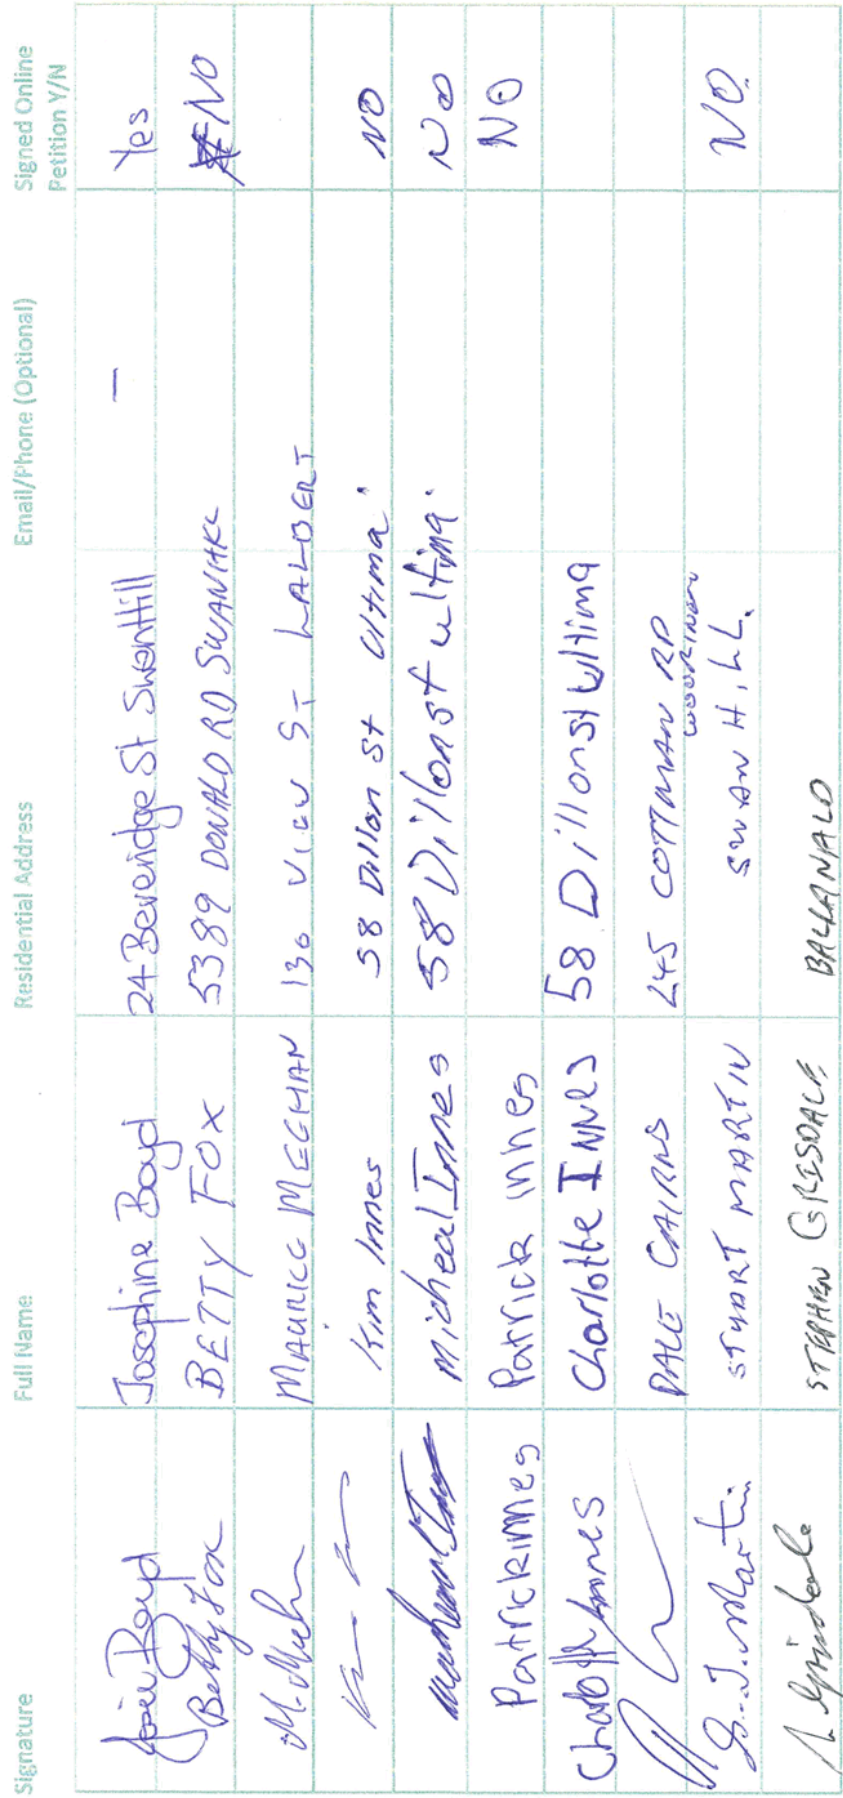 Signature Full Name Residential Address Email/Phone (Optional) Signed Online Petition Y/N
Josie Boyd Josephine Boyd 24 Beveridge St SwanHill — Yes
Betty Fox BETTY FOX 5389 DONALD RD SWANHILL NO
M. Meehan MAURICE MEEHAN 130 VIEW ST LALBERT
Kim Innes 58 Dillon St Ultima NO
Micheal Innes micheal Innes 58 Dillon st ultima. NO
Patrick innes Patrick innes NO
Charlotte Innes Charlotte INNES 58 Dillon st Ultima
DALE CAIRNS 245 COTTMAN RD
WOORINEN
S. J. Martin STUART MARTIN SWAN HILL. NO.
STEPHEN GRISDALE BALLANALD